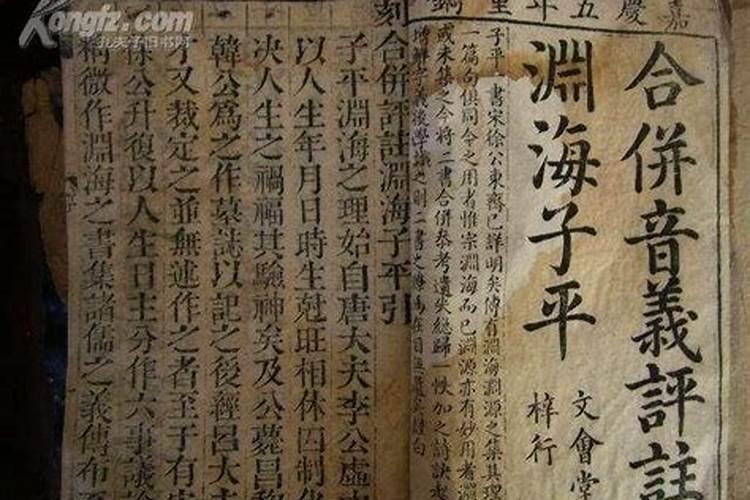 嘉慶五年重鐫
合併音義評註
淵海子平
文會堂
梓行
子平一書宋徐公東齋已詳明矣傳有淵海淵源之集其理
一篇向俱同今之用者惟宗淵海而已淵源亦有妙用者
或未集之今將二書合併參考遺失總歸一帙加之詩訣
刻合併評註淵海子平引
子平淵海之理始自唐大夫李公虛
以人生年月日時生尅旺相休囚制化
决人生之禍福其驗神矣及公薨昌黎
韓公爲之作墓誌以記之後經呂大夫
才又裁定之並無述作之者至于有宋
徐公升復以人生日主分作六事議論
精微作淵海之書集諸儒之義傳布至
Kongfz.com
孔夫子旧书网